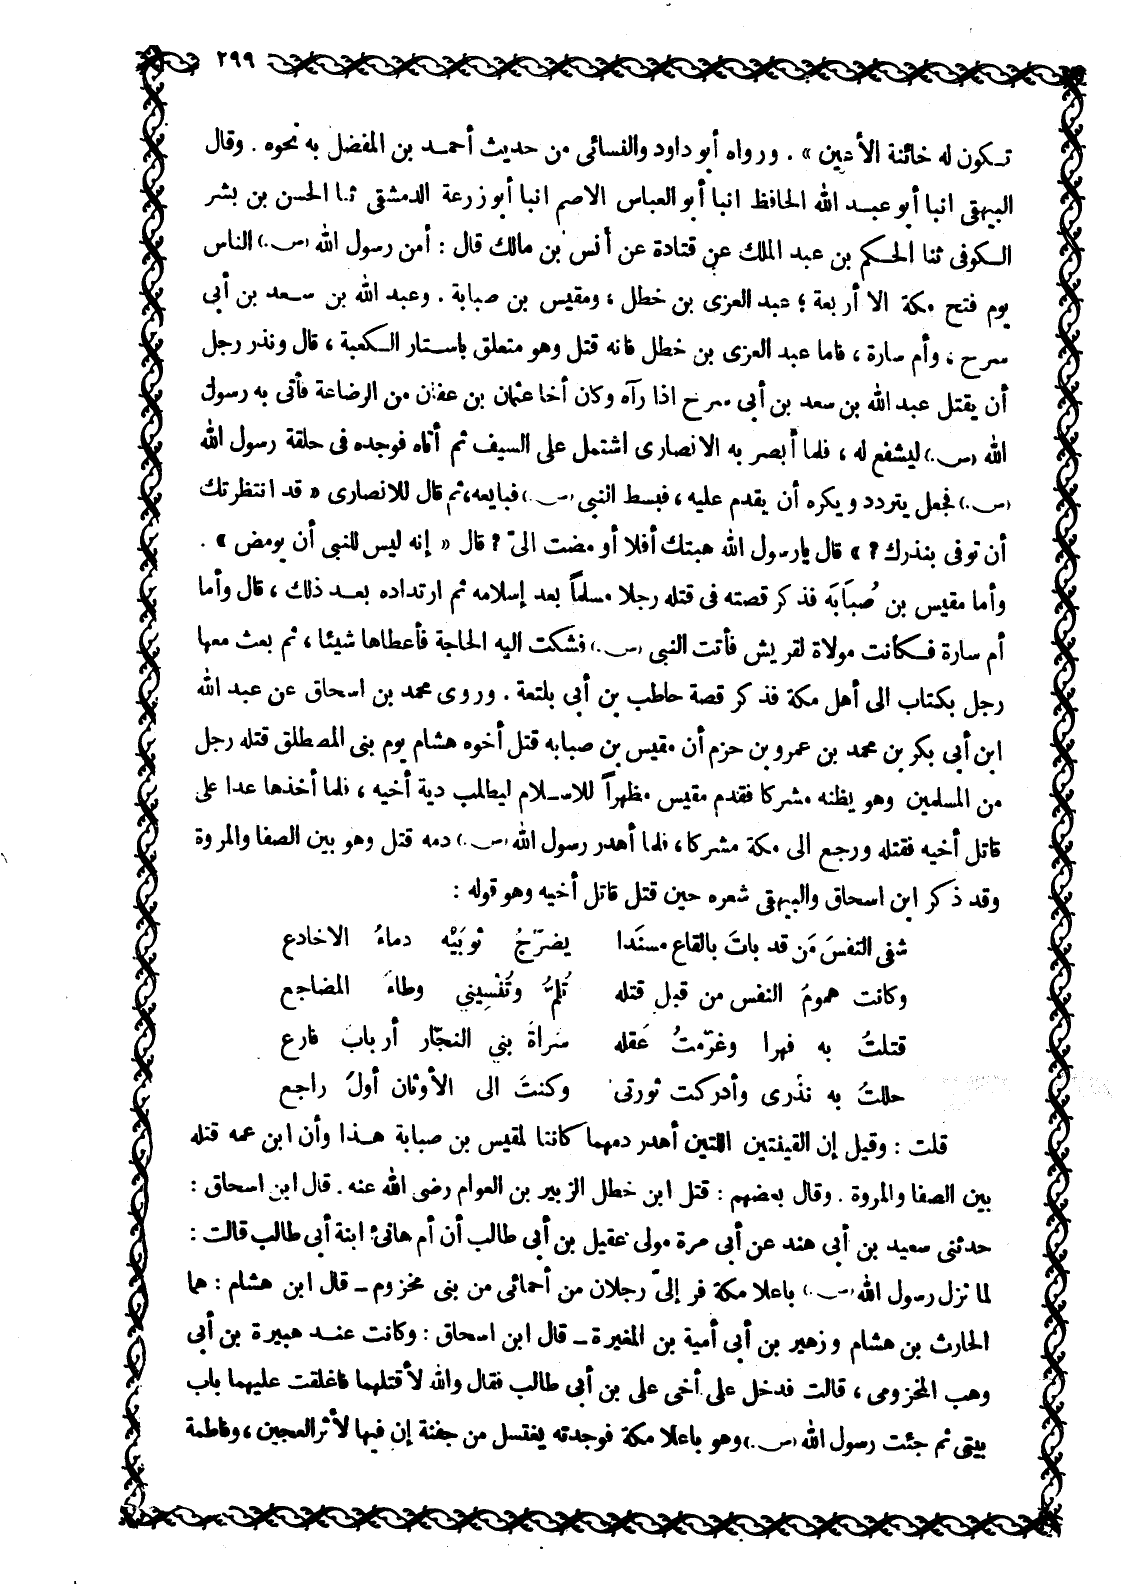 ٢٩٩
تـكون له خائنة الأعين » . ورواه أبو داود والنسائى من حديث أحمـد بن المفضل به نحوه . وقال
البيهقى انبا أبو عبـد الله الحافظ انبا أبو العباس الاصم انبا أبو زرعة الدمشقى ثنا الحسن بن بشر
الـكوفى ثنا الحـكم بن عبد الملك عن قتادة عن أنس بن مالك قال : أمن رسول الله (ص.) الناس
يوم فتح مكة الا أربعة ؛ عبد العزى بن خطل ، ومقيس بن صبابة . وعبد الله بن سـعد بن أبى
سرح ، وأم سارة ، فاما عبد العزى بن خطل فانه قتل وهو متعلق باستار الـكعبة ، قال ونذر رجل
أن يقتل عبد الله بن سعد بن أبى سرح اذا رآه وكان أخا عثمان بن عفان من الرضاعة فأتى به رسول
الله (ص.) ليشفع له ، فلما أبصر به الانصارى اشتمل على السيف ثم أتاه فوجده فى حلقة رسول الله
(ص.) فجعل يتردد ويكره أن يقدم عليه ، فبسط النبى (ص.) فبايعه ، ثم قال للانصارى « قد انتظرتك
أن توفى بنذرك ? » قال يارسول الله هبتك أفلا أومضت الىّ ? قال « إنه ليس للنبى أن يومض » .
وأما مقيس بن صُبَابَه فذكر قصته فى قتله رجلا مسلماً بعد إسلامه ثم ارتداده بعـد ذلك ، قال وأما
أم سارة فـكانت مولاة لقريش فأتت النبى (ص.) فشكت اليه الحاجة فأعطاها شيئا ، ثم بعث معها
رجل بكتاب الى أهل مكة فذكر قصة حاطب بن أبى بلتعة . وروى محمد بن اسحاق عن عبد الله
ابن أبى بكر بن محمد بن عمرو بن حزم أن مقيس بن صبابه قتل أخوه هشام يوم بنى المصطلق قتله رجل
من المسلمين وهو يظنه مشركا فقدم مقيس مظهراً للاسـلام ليطالب دية أخيه ، فلما أخذها عدا على
قاتل أخيه فقتله ورجع الى مكة مشركا ، فلما أهدر رسول الله (ص.) دمه قتل وهو بين الصفا والمروة
وقد ذكر ابن اسحاق والبيهقى شعره حين قتل قاتل أخيه وهو قوله :
شفى النفسَ مَن قد باتَ بالقاع مسنَدا يضرّجُ ثوبَيْه دماءُ الاخادع
وكانت همومُ النفس من قبل قتله تُلِمُّ وتُنْسِيني وطاءَ المضاجع
قتلتُ به فهرا وغرّمتُ عَقله سَراةَ بني النجّار أربابَ فارع
حللتُ به نذْرى وأدركت ثورتى وكنتَ الى الأوثان أولُ راجع
قلت : وقيل إن القينتين اللتين أهدر دمهما كانتا لمقيس بن صبابة هـذا وأن ابن عمه قتله
بين الصفا والمروة . وقال بعضهم : قتل ابن خطل الزبير بن العوام رضى الله عنه . قال ابن اسحاق :
حدثنى سعيد بن أبى هند عن أبى مرة مولى عقيل بن أبى طالب أن أم هانىء ابنة أبى طالب قالت :
لما نزل رسول الله (ص.) باعلا مكة فر إلىّ رجلان من أحمائى من بنى مخزوم ــ قال ابن هشام : هما
الحارث بن هشام وزهير بن أبى أمية بن المغيرة ــ قال ابن اسحاق : وكانت عنـد هبيرة بن أبى
وهب المخزومى ، قالت فدخل على أخى على بن أبى طالب فقال والله لأقتلهما فاغلقت عليهما باب
بيتى ثم جئت رسول الله (ص.) وهو باعلا مكة فوجدته يغتسل من جفنة إن فيها لأثر العجين ، وفاطمة